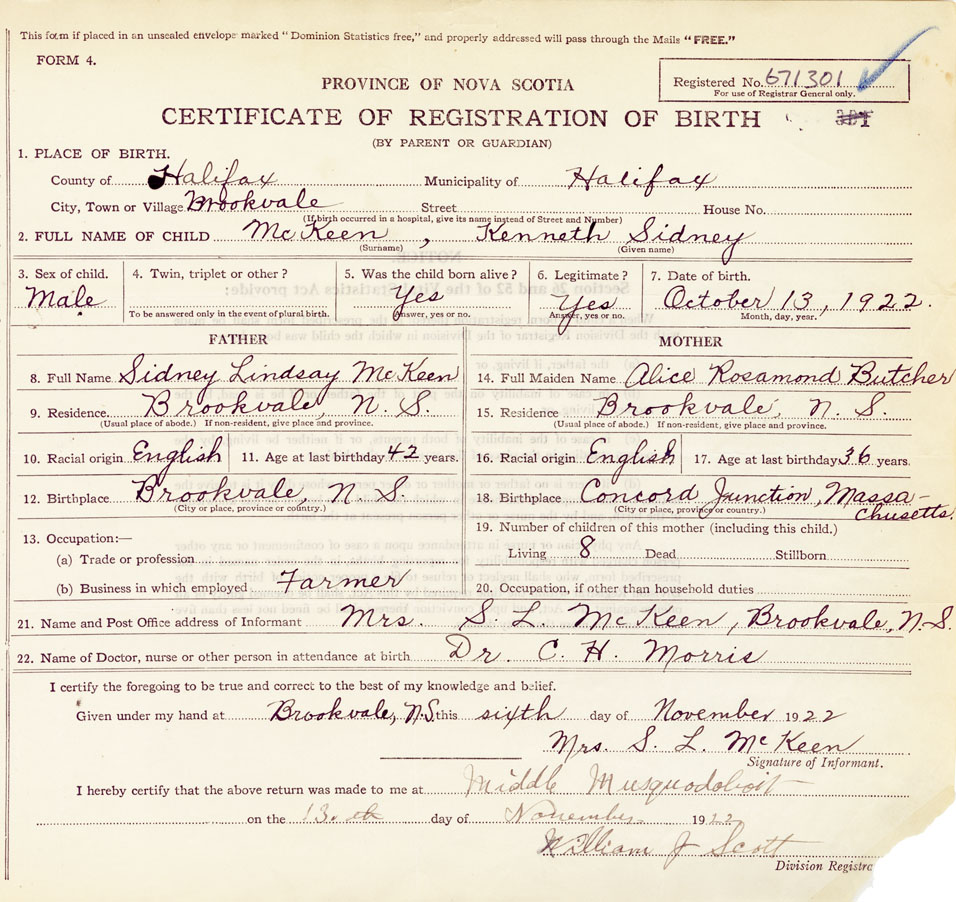 This form if placed in an unsealed envelope marked "Dominion Statistics free," and properly addressed will pass through the Mails "FREE."
FORM 4.
Registered No. 671301
For use of Registrar General only.
PROVINCE OF NOVA SCOTIA
CERTIFICATE OF REGISTRATION OF BIRTH
(BY PARENT OR GUARDIAN)
1. PLACE OF BIRTH.
County of Halifax Municipality of Halifax
City, Town or Village Brookvale Street House No.
(If birth occurred in a hospital, give its name instead of Street and Number)
2. FULL NAME OF CHILD McKeen, Kenneth Sidney
(Surname) (Given name)
3. Sex of child. 4. Twin, triplet or other? 5. Was the child born alive? 6. Legitimate? 7. Date of birth.
Male Yes Yes October 13, 1922.
To be answered only in the event of plural birth. Answer, yes or no. Answer, yes or no. Month, day, year.
FATHER MOTHER
8. Full Name Sidney Lindsay McKeen 14. Full Maiden Name Alice Rosamond Butcher
9. Residence Brookvale, N. S. 15. Residence Brookvale, N. S.
(Usual place of abode.) If non-resident, give place and province. (Usual place of abode.) If non-resident, give place and province.
10. Racial origin English 11. Age at last birthday 42 years. 16. Racial origin English 17. Age at last birthday 36 years.
12. Birthplace Brookvale, N. S. 18. Birthplace Concord Junction, Massa-
(City or place, province or country.) (City or place, province or country.) chusetts.
19. Number of children of this mother (including this child.)
13. Occupation:—
(a) Trade or profession Living 8 Dead Stillborn
(b) Business in which employed Farmer 20. Occupation, if other than household duties
21. Name and Post Office address of Informant Mrs. S. L. McKeen, Brookvale, N.S.
22. Name of Doctor, nurse or other person in attendance at birth Dr. C. H. Morris
I certify the foregoing to be true and correct to the best of my knowledge and belief.
Given under my hand at Brookvale, N.S. this sixth day of November 1922
Mrs. S. L. McKeen
Signature of Informant.
I hereby certify that the above return was made to me at Middle Musquodoboit
on the 13th day of November 1922
William J Scott
Division Registra